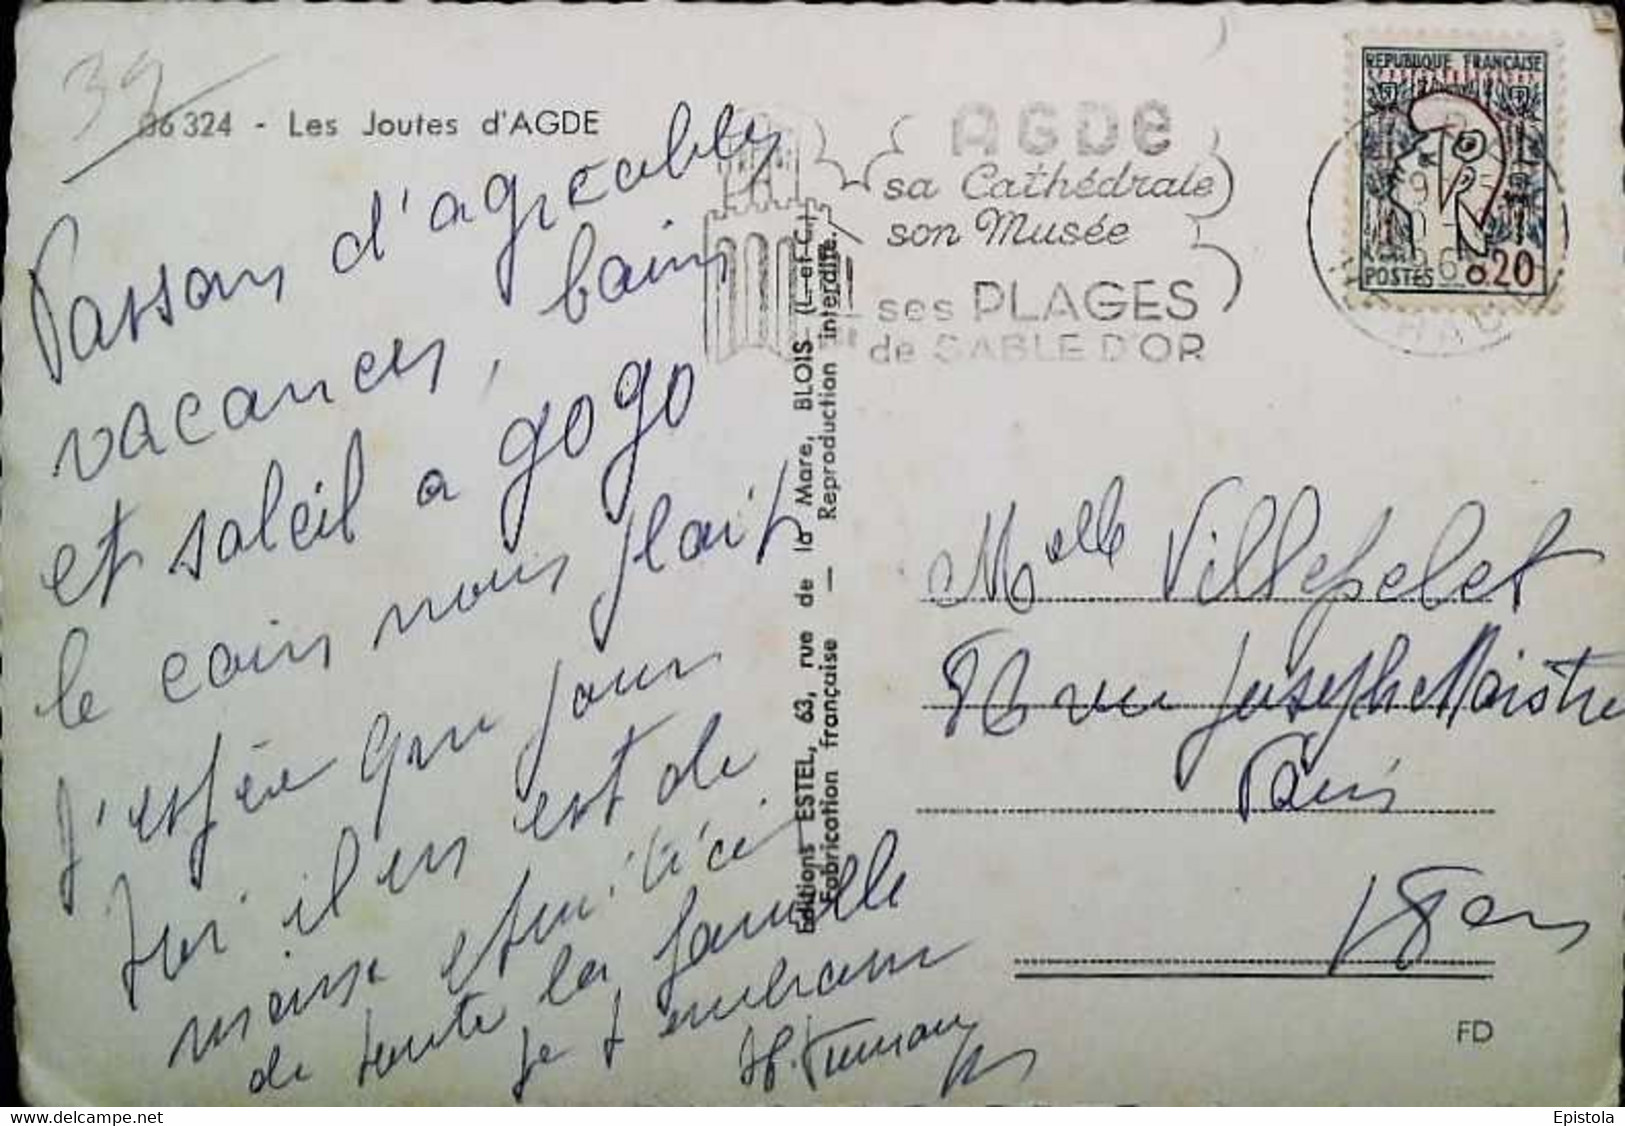 39
36 324 - Les Joutes d'AGDE
Passons d'agréables
vacances, bains
et soleil a gogo
le coin nous plait
J'espère que pour
toi il en est de
même
de toute la famille
je t'embrasse
Editions ESTEL, 63, rue de la Mare, BLOIS (L.-et-C.)
Fabrication française — Reproduction interdite.
AGDe
sa Cathédrale
son Musée
ses PLAGES
de SABLE D'OR
REPUBLIQUE FRANÇAISE
POSTES 0,20
Melle Villepelet
56 rue Joseph de Maistre
Paris
FD
delcampe.net
Epistola